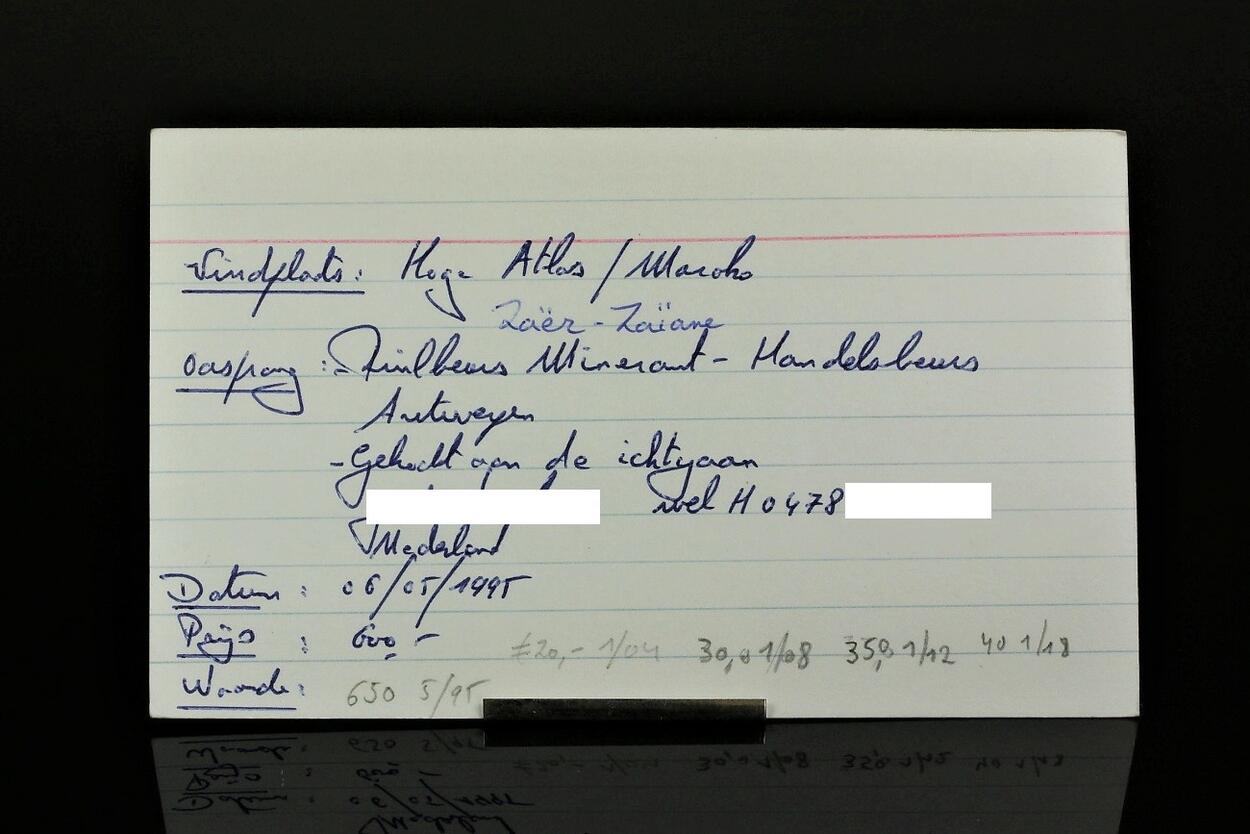 Vindplaats: Hoge Atlas / Maroko
Zaër-Zaïane
Oosprong: - Ruilbeurs Minerant - Handelsbeurs
Antwerpen
- Gekocht aan de
wel H 0478
Nederland
Datum: 06/05/1995
Prijs: 600,-
20,- 1/04 30,0 1/08 35,0 1/12 40 1/18
Waarde: 650 5/95